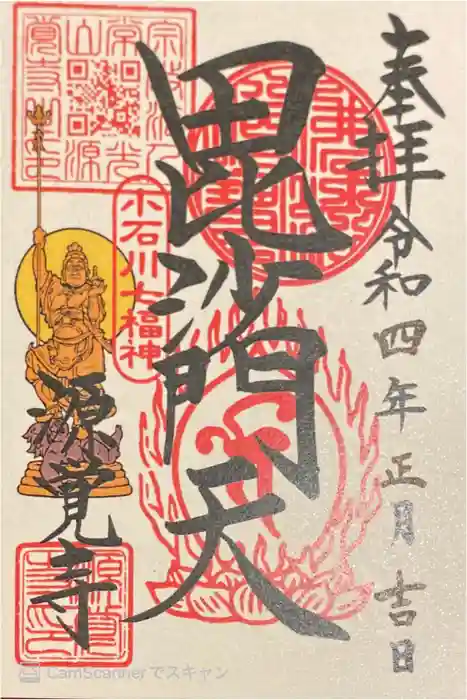 奉拝 令和四年 正月 吉日
毘沙門天
小石川七福神
源覚寺
CamScannerでスキャン